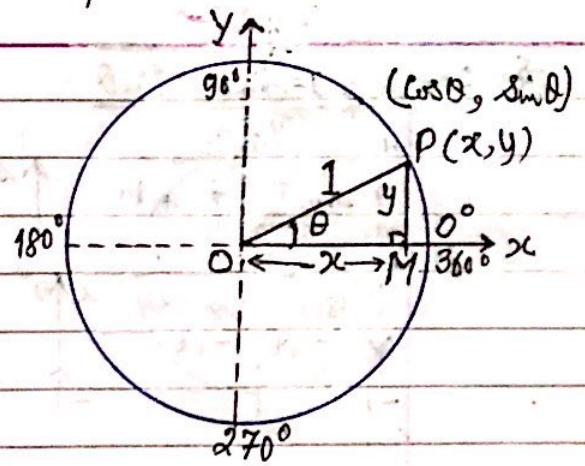 Y
90°
(cosθ, sinθ)
P(x,y)
1
y
θ
0°
180°
O
x
M
360°
x
270°